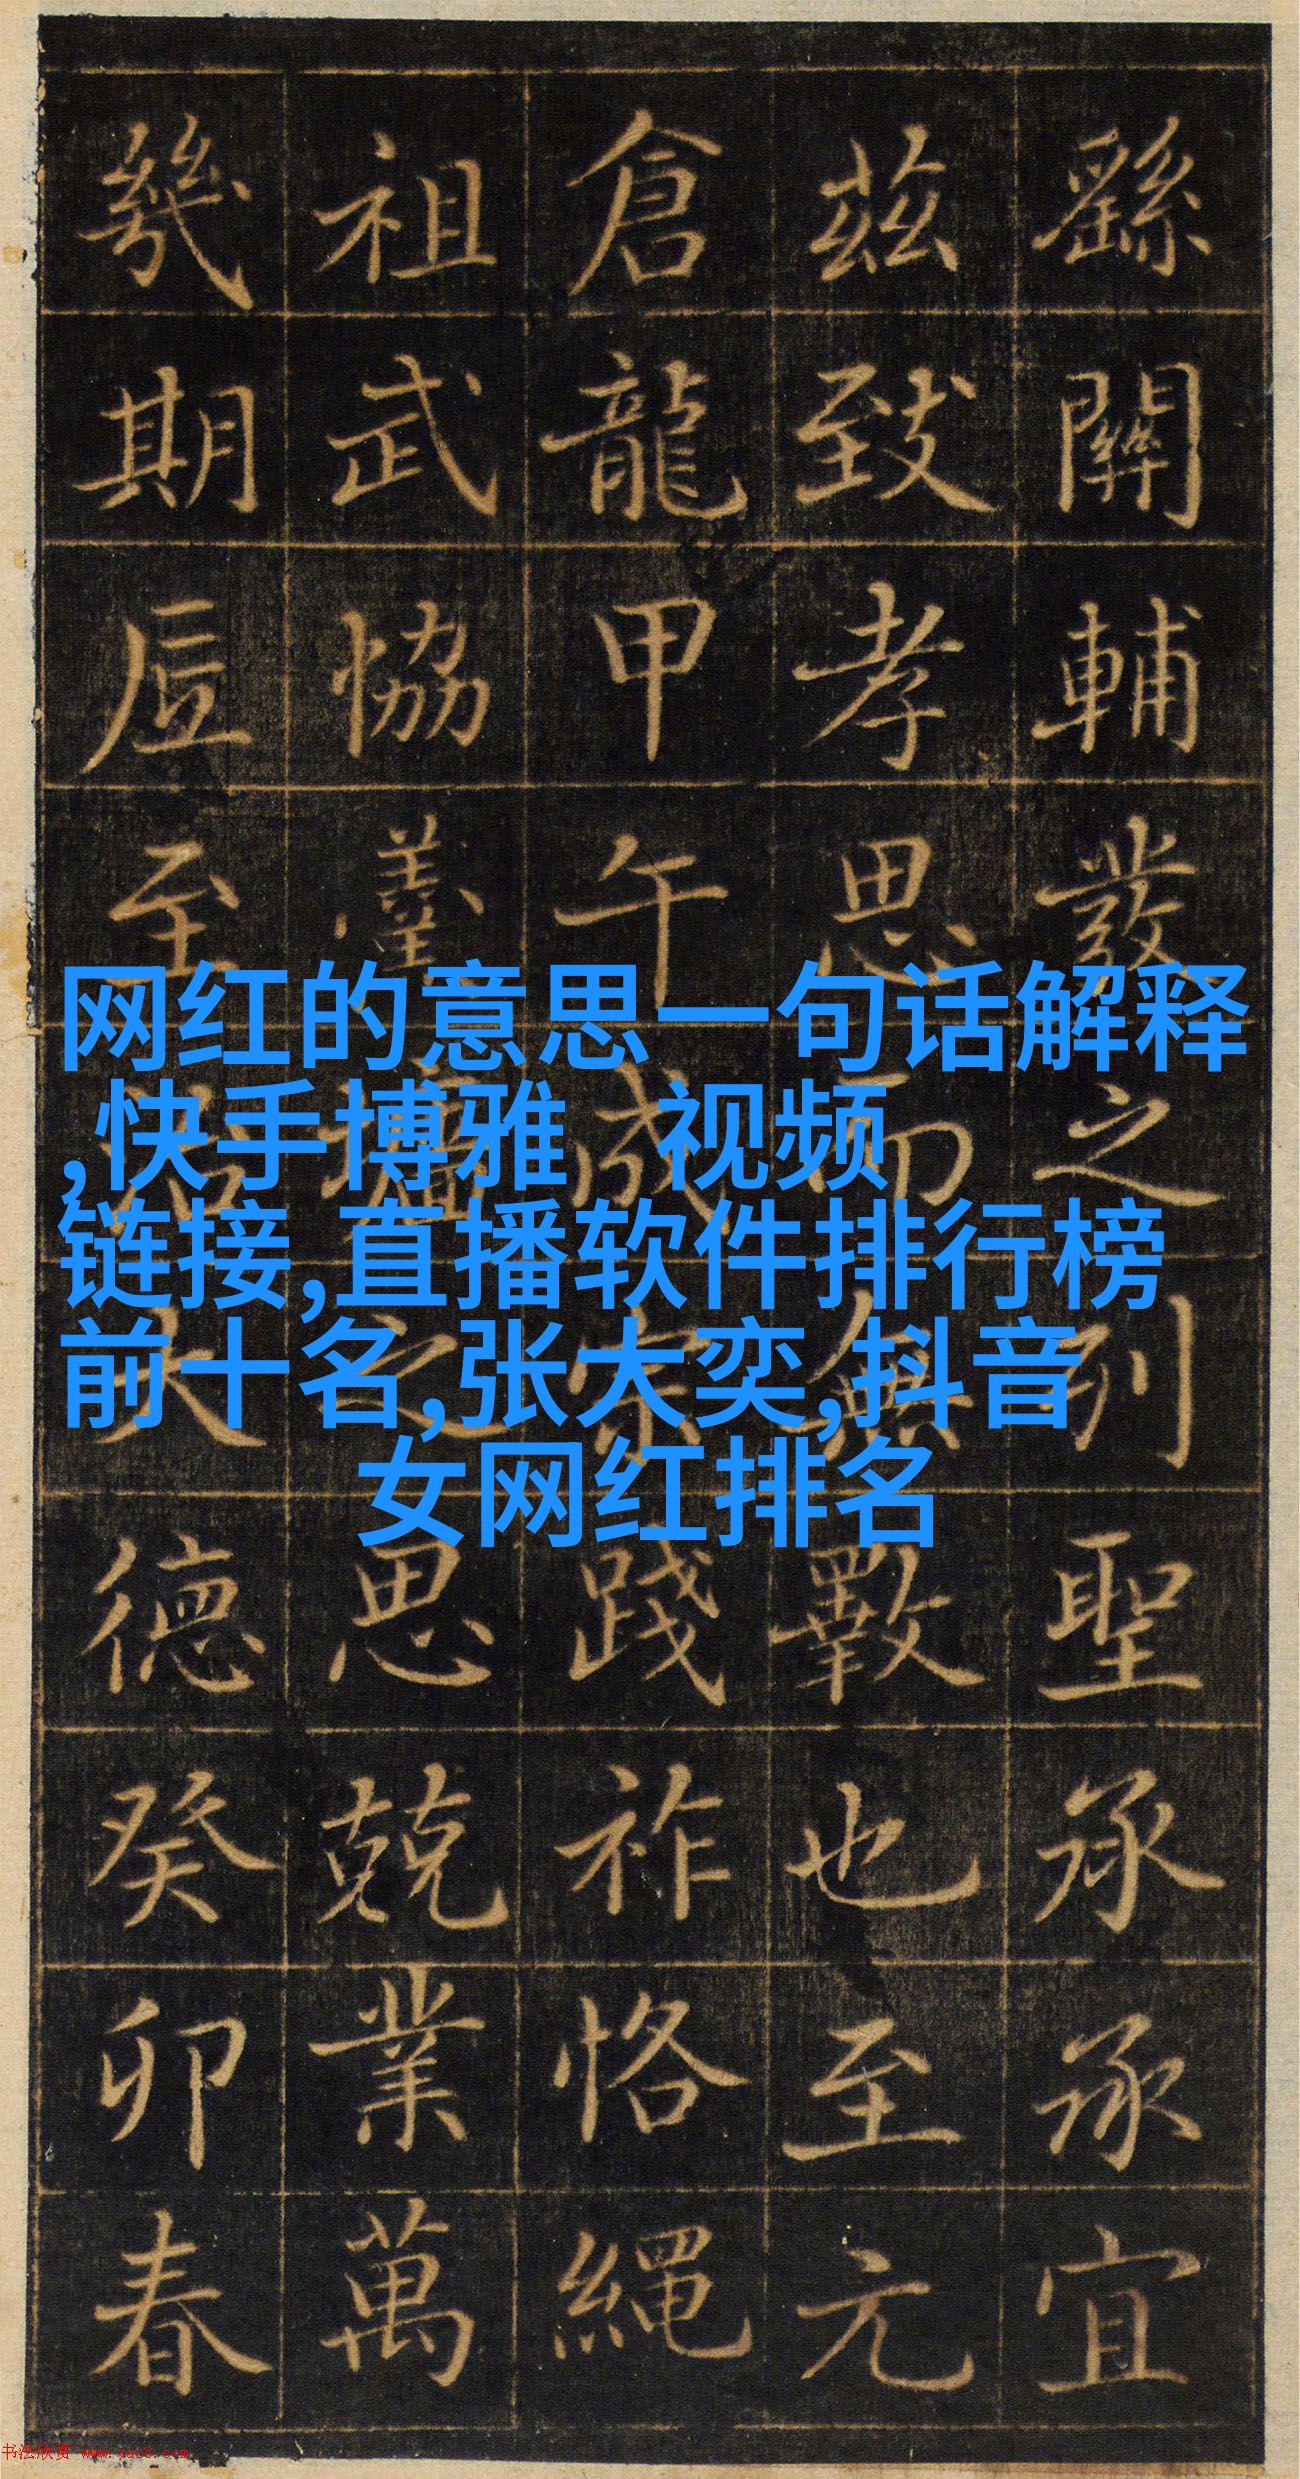 繇關輔發之列聖承承宜
茲致孝思而無斁也至元
倉龍甲午成宗踐祚恪繩
祖武協羹墻之思兢業萬
幾期至治大德癸卯春
网红的意思一句话解释
,快手博雅 视频
链接,直播软件排行榜
前十名,张大奕,抖音
女网红排名
书法欣赏 www.yac8.com